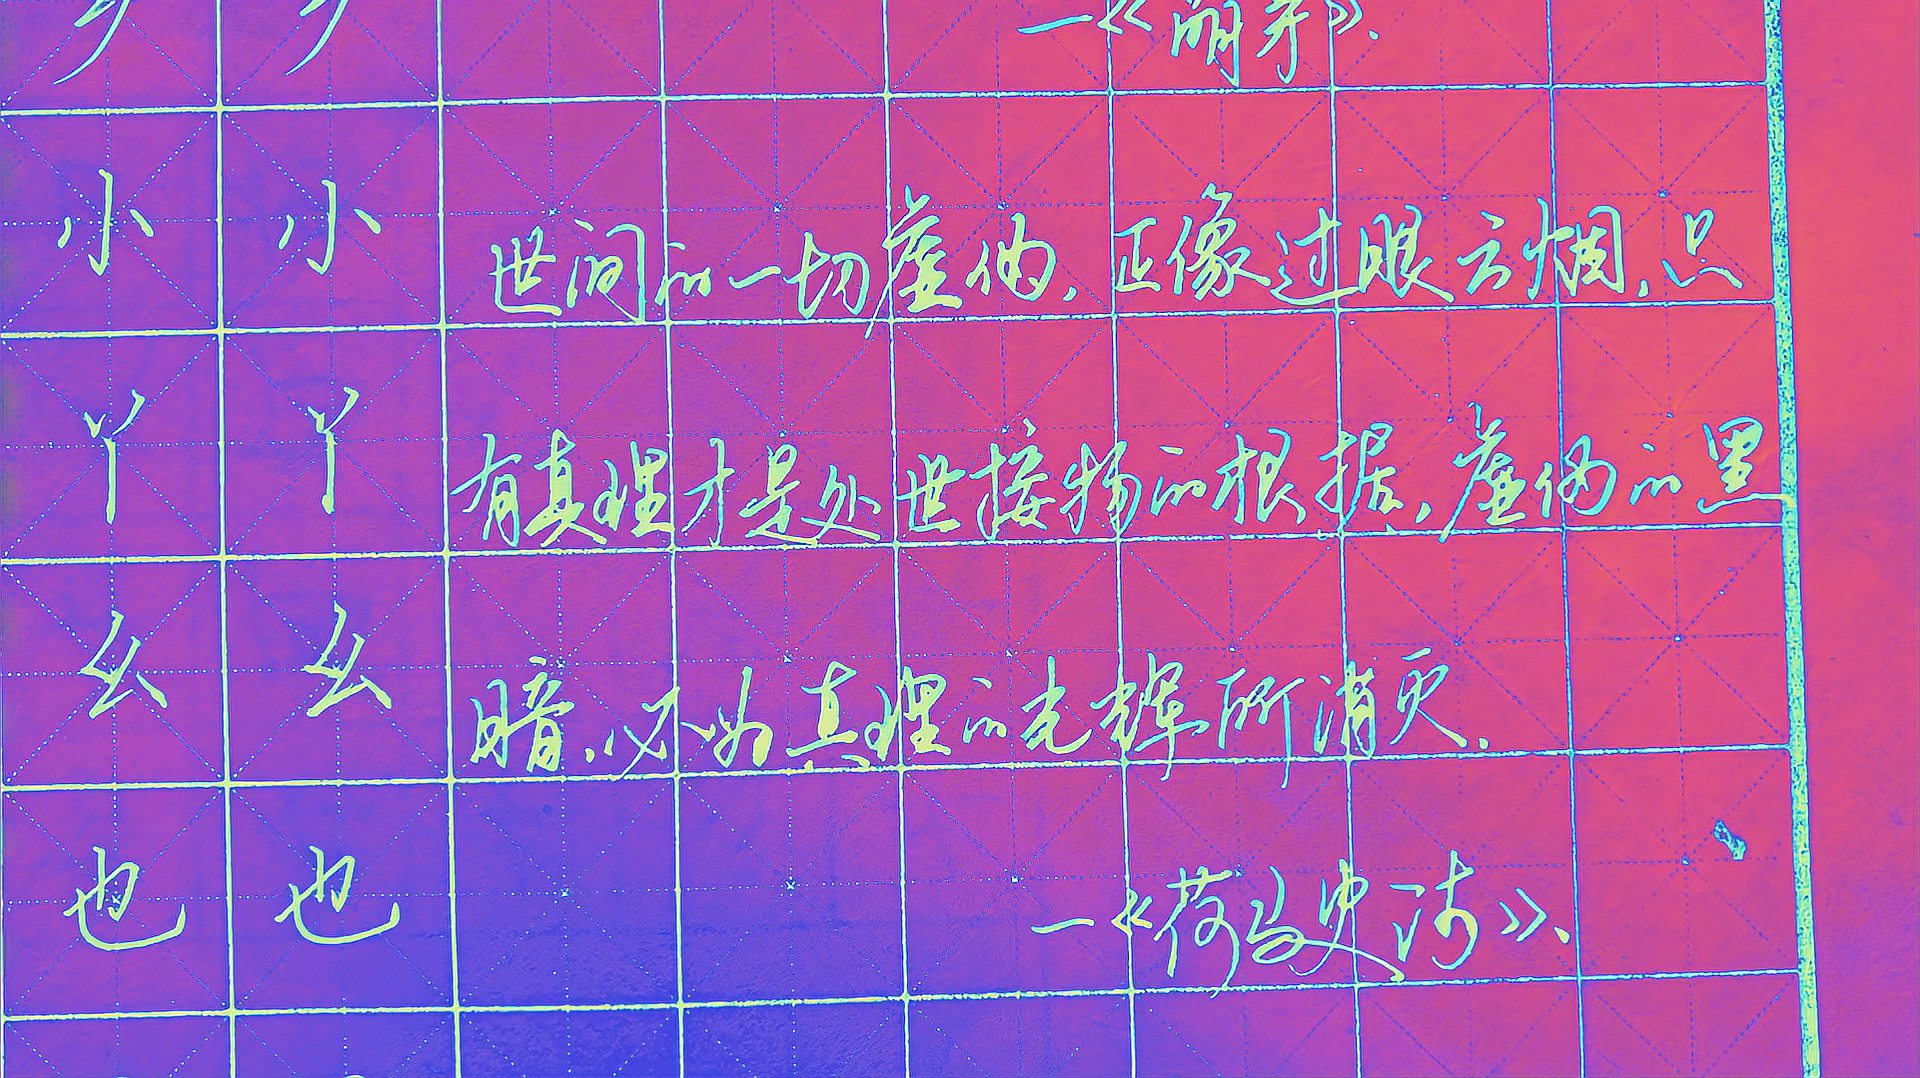 —《萌芽》.
小 小 世间的一切虚伪,正像过眼云烟,只
丫 丫 有真理才是处世接物的根据,虚伪的黑
幺 幺 暗,必为真理的光辉所消灭.
也 也 —《荷马史诗》.